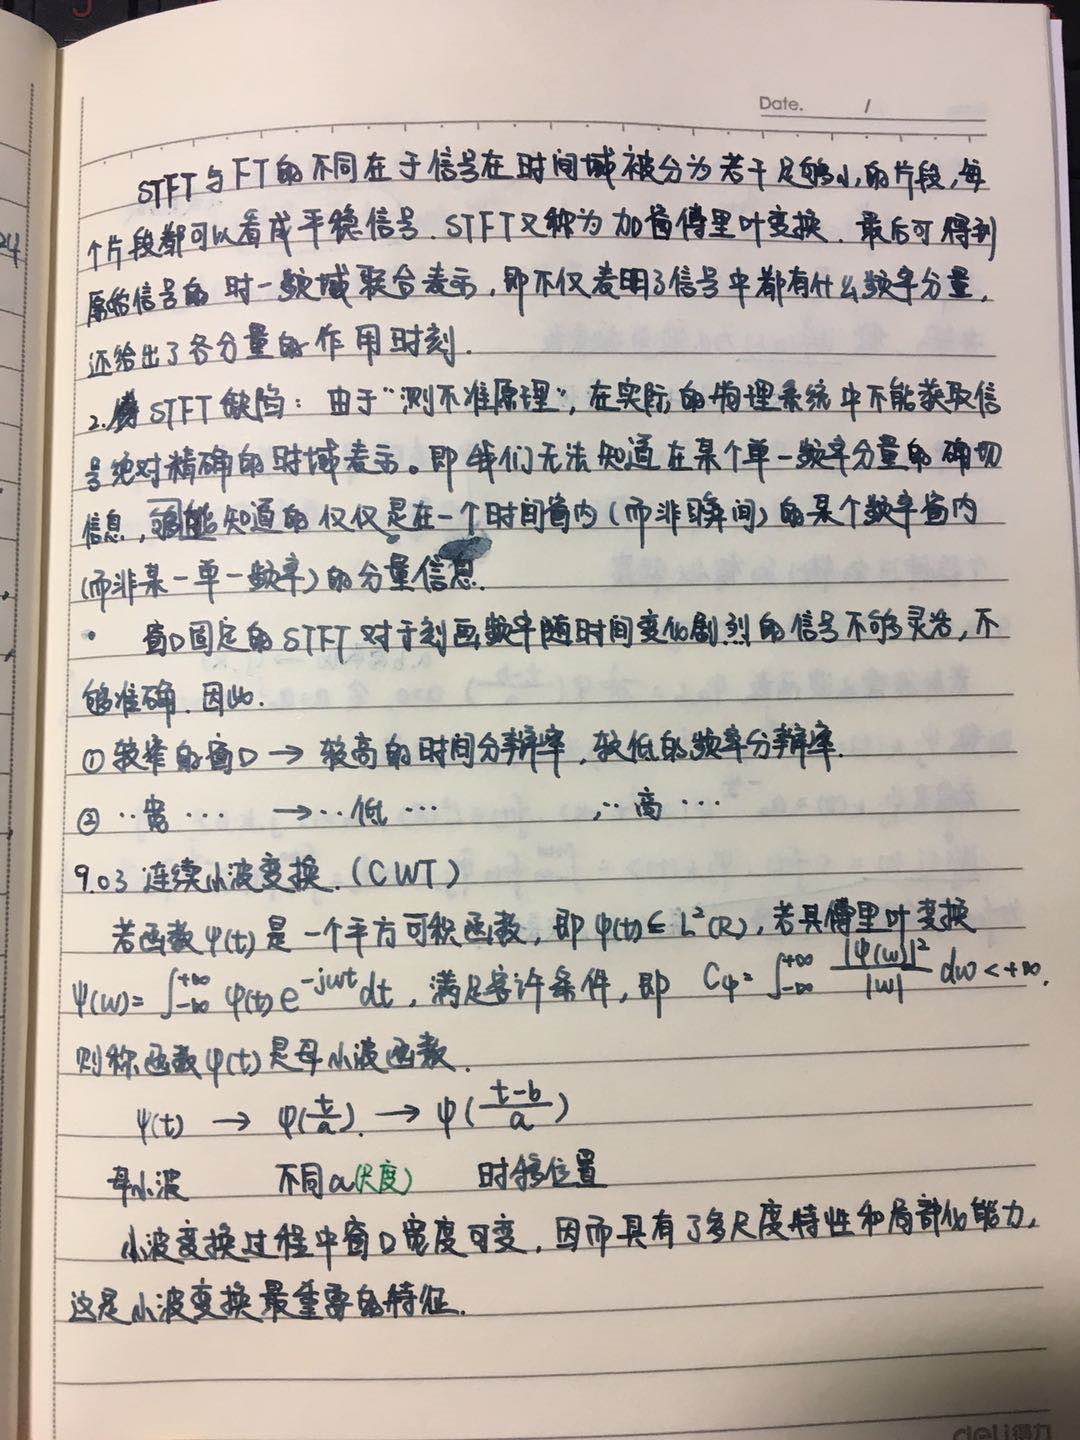 Date. /
STFT与FT的不同在于信号在时间域被分为若干足够小的片段,每
个片段都可以看成平稳信号.STFT又称为加窗傅里叶变换.最后可得到
原始信号的时-频域联合表示,即不仅表明了信号中都有什么频率分量,
还给出了各分量的作用时刻.
2. STFT缺陷:由于"测不准原理",在实际的物理系统中不能获取信
号绝对精确的时域表示。即我们无法知道在某个单一频率分量的确切
信息,能知道的仅仅是在一个时间窗内(而非瞬间)的某个频率窗内
(而非某一单一频率)的分量信息.
窗口固定的STFT对于刻画频率随时间变化剧烈的信号不够灵活,不
够准确.因此.
①较窄的窗口→较高的时间分辩率,较低的频率分辩率.
②‥宽…→‥低…,‥高…
9.03 连续小波变换.(CWT)
若函数ψ(t)是一个平方可积函数,即ψ(t)∈L²(R),若其傅里叶变换
Ψ(w)=∫_{-∞}^{+∞}ψ(t)e^{-jwt}dt,满足容许条件,即 Cψ=∫_{-∞}^{+∞} |Ψ(w)|²/|w| dw<+∞.
则称函数ψ(t)是母小波函数.
ψ(t) → ψ(t/a). → ψ((t-b)/a)
母小波 不同a(尺度) 时移位置
小波变换过程中窗口宽度可变,因而具有了多尺度特性和局部化能力,
这是小波变换最重要的特征.
deli得力